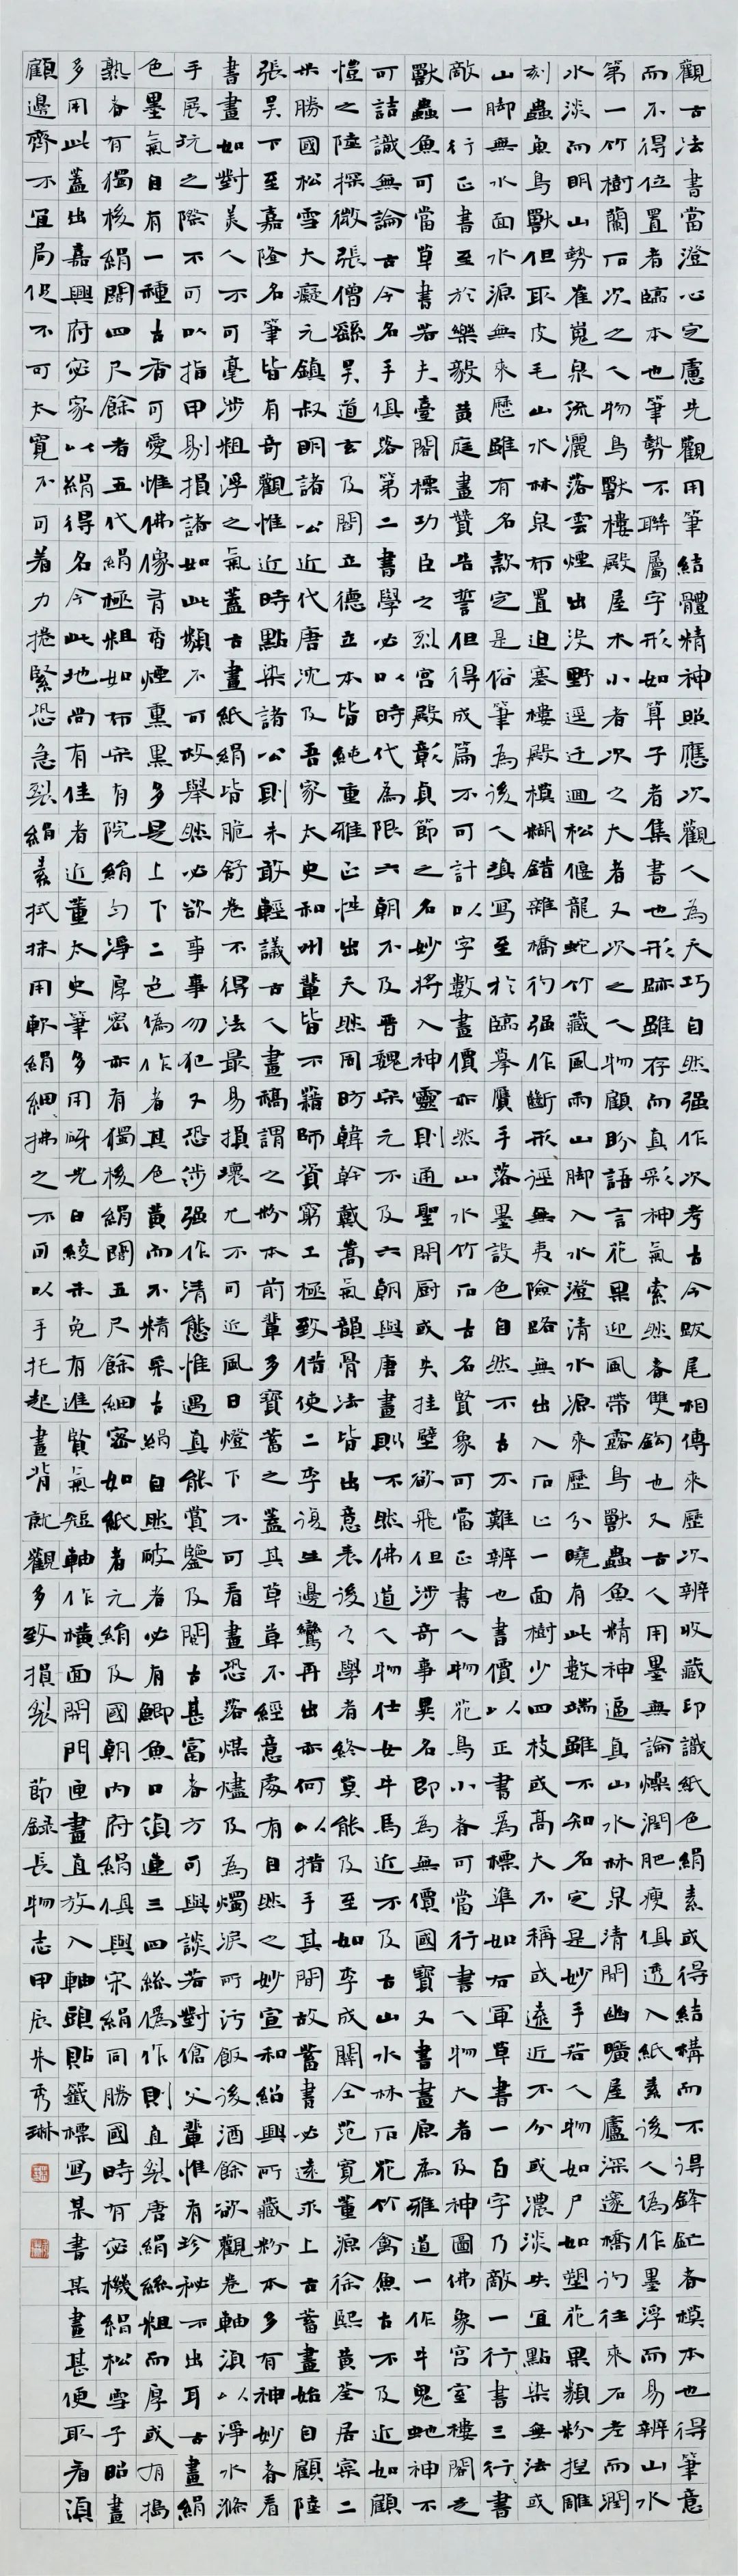 觀古法書當澄心定慮先觀用筆結體精神照應次觀人為天巧自然强作次考古今跋尾相傳來歷次辨收藏印識紙色絹素或得結構而不得鋒鋩者模本也得筆意
而不得位置者臨本也筆勢不聯屬字形如算子者集書也形跡雖存而真彩神氣索然者雙鉤也又古人用墨無論燥潤肥瘦俱透入紙素後人偽作墨浮而易辨山水
第一竹樹蘭石次之人物鳥獸樓殿屋木小者次之大者又次之人物顧盼語言花果迎風帶露鳥獸蟲魚精神逼真山水林泉清閒幽曠屋廬深邃橋彴往來石老而潤
水淡而明山勢崔嵬泉流灑落雲煙出没野逕迂迴松偃龍蛇竹藏風雨山脚入水澄清水源來歷分曉有此數端雖不知名定是妙手若人物如尸如塑花果類粉捏雕
刻蟲魚鳥獸但取皮毛山水林泉布置迫塞樓殿模糊錯雜橋彴强作斷形徑無夷險路無出入石止一面樹少四枝或高大不稱或遠近不分或濃淡失宜點染無法或
山脚無水面水源無來歷雖有名款定是俗筆為後人填寫至於臨摹贋手落墨設色自然不古不難辨也書價以正書為標準如右軍草書一百字乃敵一行書三行書
敵一行正書至於樂毅黄庭畫贊告誓但得成篇不可計以字數畫價亦然山水竹石古名賢象可當正書人物花鳥小者可當行書人物大者及神圖佛象宮室樓閣走
獸蟲魚可當草書若夫臺閣標功臣之烈宮殿彰貞節之名妙將入神靈則通聖開厨或失挂壁欲飛但涉奇事異名即為無價國寶又書畫原為雅道一作牛鬼蛇神不
可詰識無論古今名手俱落第二書學必以時代為限六朝不及晉魏宋元不及六朝與唐畫則不然佛道人物仕女牛馬近不及古山水林石花竹禽魚古不及近如顧
愷之陸探微張僧繇吳道玄及閻立德立本皆純重雅正性出天然周昉韓幹戴嵩氣韻骨法皆出意表後之學者終莫能及至如李成關仝范寬董源徐熙黃筌居寀二
米勝國松雪大癡元鎮叔明諸公近代唐沈及吾家太史和州輩皆不藉師資窮工極致借使二李復生邊鸞再出亦何以措手其間故蓄書必遠求上古蓄畫始自顧陸
張吳下至嘉隆名筆皆有奇觀惟近時點染諸公則未敢輕議古人畫稿謂之粉本前輩多寶蓄之蓋其草草不經意處有自然之妙宣和紹興所藏粉本多有神妙者看
書畫如對美人不可毫涉粗浮之氣蓋古畫紙絹皆脆舒卷不得法最易損壞尤不可近風日燈下不可看畫恐落煤燼及為燭淚所污飯後酒餘欲觀卷軸須以淨水滌
手展玩之際不可以指甲剔損諸如此類不可枚舉然必欲事事勿犯又恐涉强作清態惟遇真能賞鑒及閱古甚富者方可與談若對傖父輩惟有珍秘不出耳古畫絹
色墨氣自有一種古香可愛惟佛像有香煙熏黑多是上下二色偽作者其色黄而不精采古絹自然破者必有鯽魚口須連三四絲偽作則直裂唐絹絲粗而厚或有搗
熟者有獨梭絹闊四尺餘者五代絹極粗如布宋有院絹勻淨厚密亦有獨梭絹闊五尺餘細密如紙者元絹及國朝内府絹俱與宋絹同勝國時有宓機絹松雪子昭畫
多用此蓋出嘉興府宓家以絹得名今此地尚有佳者近董太史筆多用砑光白綾未免有進賢氣短軸作橫面開門匣畫直放入軸頭貼籤標寫某書某畫甚便取看須
顧邊齊不宜局促不可太寬不可着力捲緊恐急裂絹素拭抹用軟絹細〻拂之不可以手托起畫背就觀多致損裂 節録長物志甲辰朱秀琳